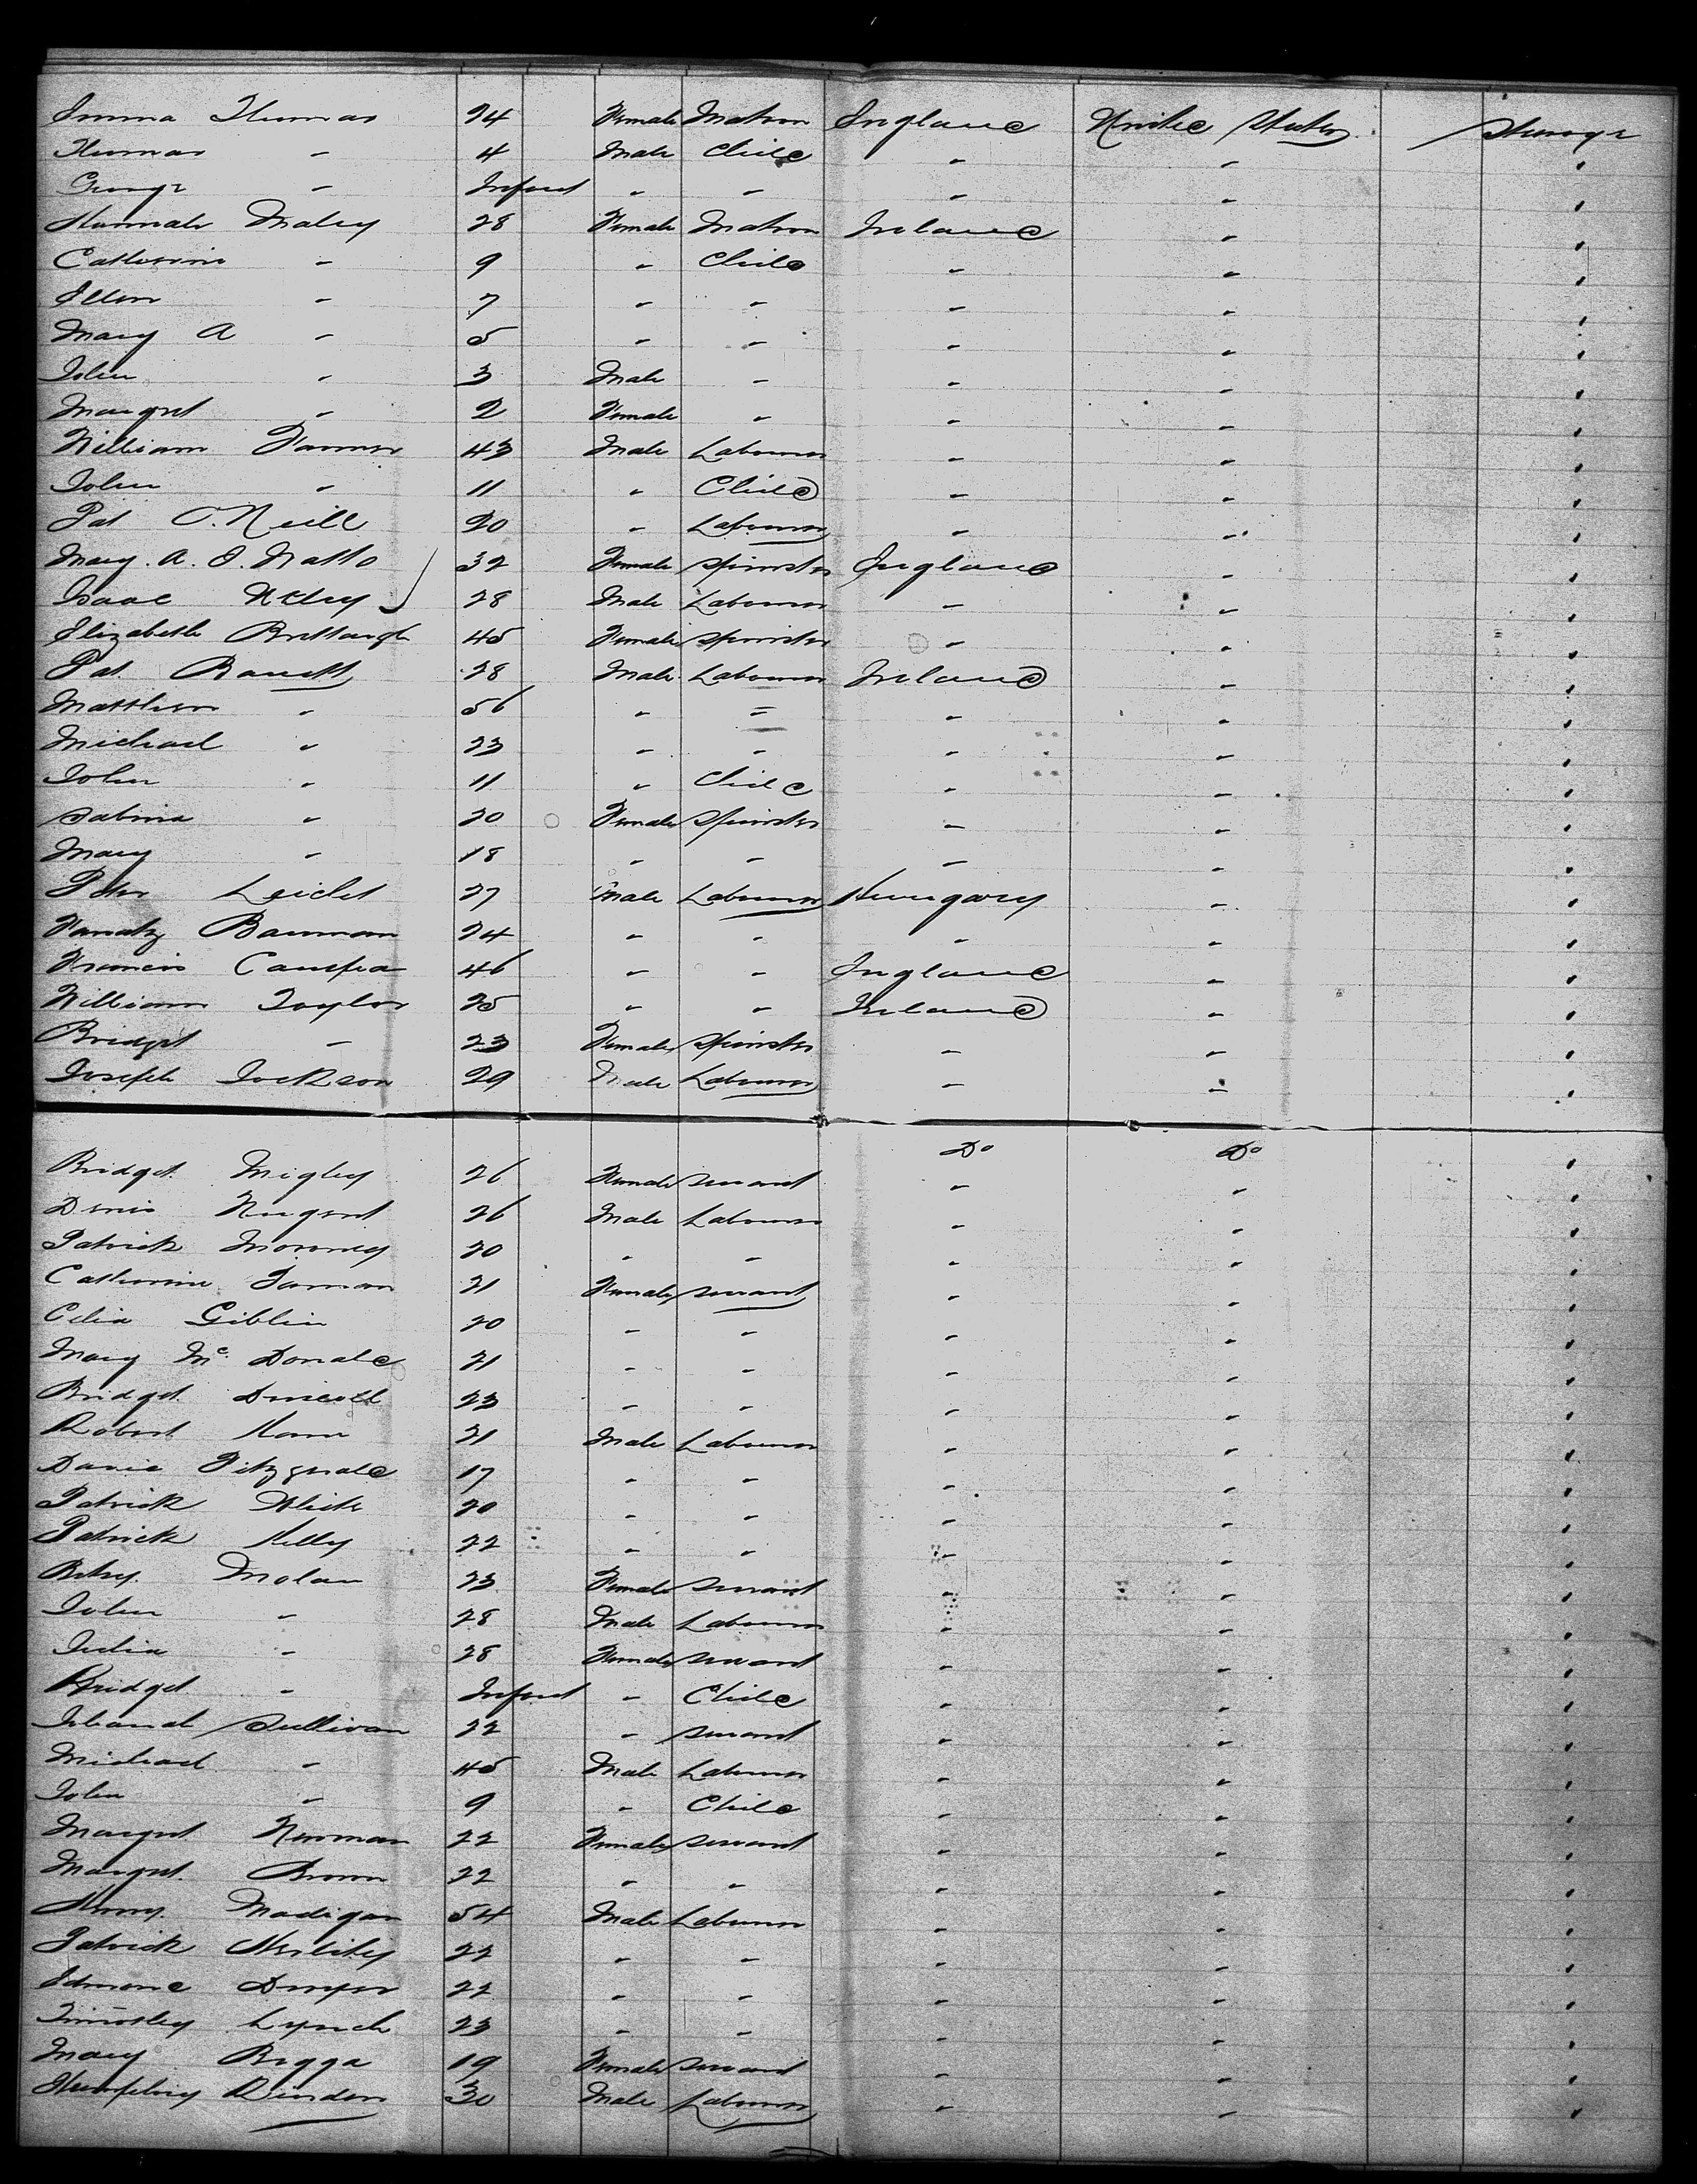 Emma Thomas 24 Female Matron England United States Steerage
Thomas " 4 Male Child " " "
George " Infant " " " " "
Hannah Maley 28 Female Matron Ireland " "
Catherine " 9 " Child " " "
Ellen " 7 " " " " "
Mary A " 5 " " " " "
John " 3 Male " " " "
Margret " 2 Female " " " "
William Farmer 43 Male Labourer " " "
John " 11 " Child " " "
Pat O.Neill 20 " Labourer " " "
Mary. A. E. Natto 32 Female Spinster England " "
Isaac 28 Male Labourer " " "
Elizabeth 45 Female Spinster " " "
Pat Barrett 28 Male Labourer Ireland " "
Matthew " 56 " " " " "
Michael " 23 " " " " "
John " 11 " Child " " "
Sabina " 20 Female Spinster " " "
Mary " 18 " " " " "
Peter Leicht 27 Male Labourer Hungary " "
Bauman 24 " " " " "
Francis 46 " " England " "
William Taylor 25 " " Ireland " "
Bridget " 23 Female Spinster " " "
Joseph Jackson 29 Male Labourer " " "
Do Do "
Bridget Migley 26 Female Servant " " "
Denis Nugent 26 Male Labourer " " "
Patrick Moroney 20 " " " " "
Catherine 21 Female Servant " " "
Celia Giblin 20 " " " " "
Mary Mc Donald 21 " " " " "
Bridget Driscoll 23 " " " " "
Robert 21 Male Labourer " " "
David Fitzgerald 17 " " " " "
Patrick White 20 " " " " "
Patrick Kelly 22 " " " " "
Betsy Molan 23 Female Servant " " "
John " 28 Male Labourer " " "
Julia " 28 Female Servant " " "
Bridget " Infant " Child " " "
Johanah Sullivan 22 " Servant " " "
Michael " 45 Male Labourer " " "
John " 9 " Child " " "
Margret Newman 22 Female Servant " " "
Margret Brown 22 " " " " "
Henry Madigan 54 Male Labourer " " "
Patrick Herlihy 22 " " " " "
Edmond Dwyer 22 " " " " "
Timothy Lynch 23 " " " " "
Mary Bigga 19 Female Servant " " "
Humphrey Riordan 30 Male Labourer " " "